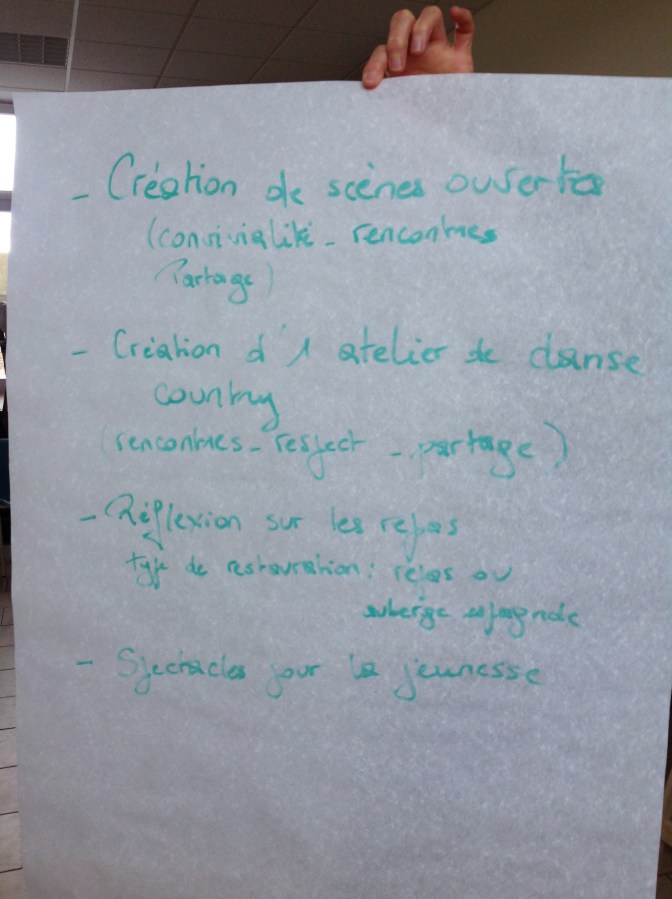 - Création de scènes ouvertes
(convivialité - rencontres
Partage)
- Création d'1 atelier de danse
country
(rencontres - respect - partage)
- Réflexion sur les repas
type de restauration : repas ou
auberge espagnole
- Spectacles pour la jeunesse